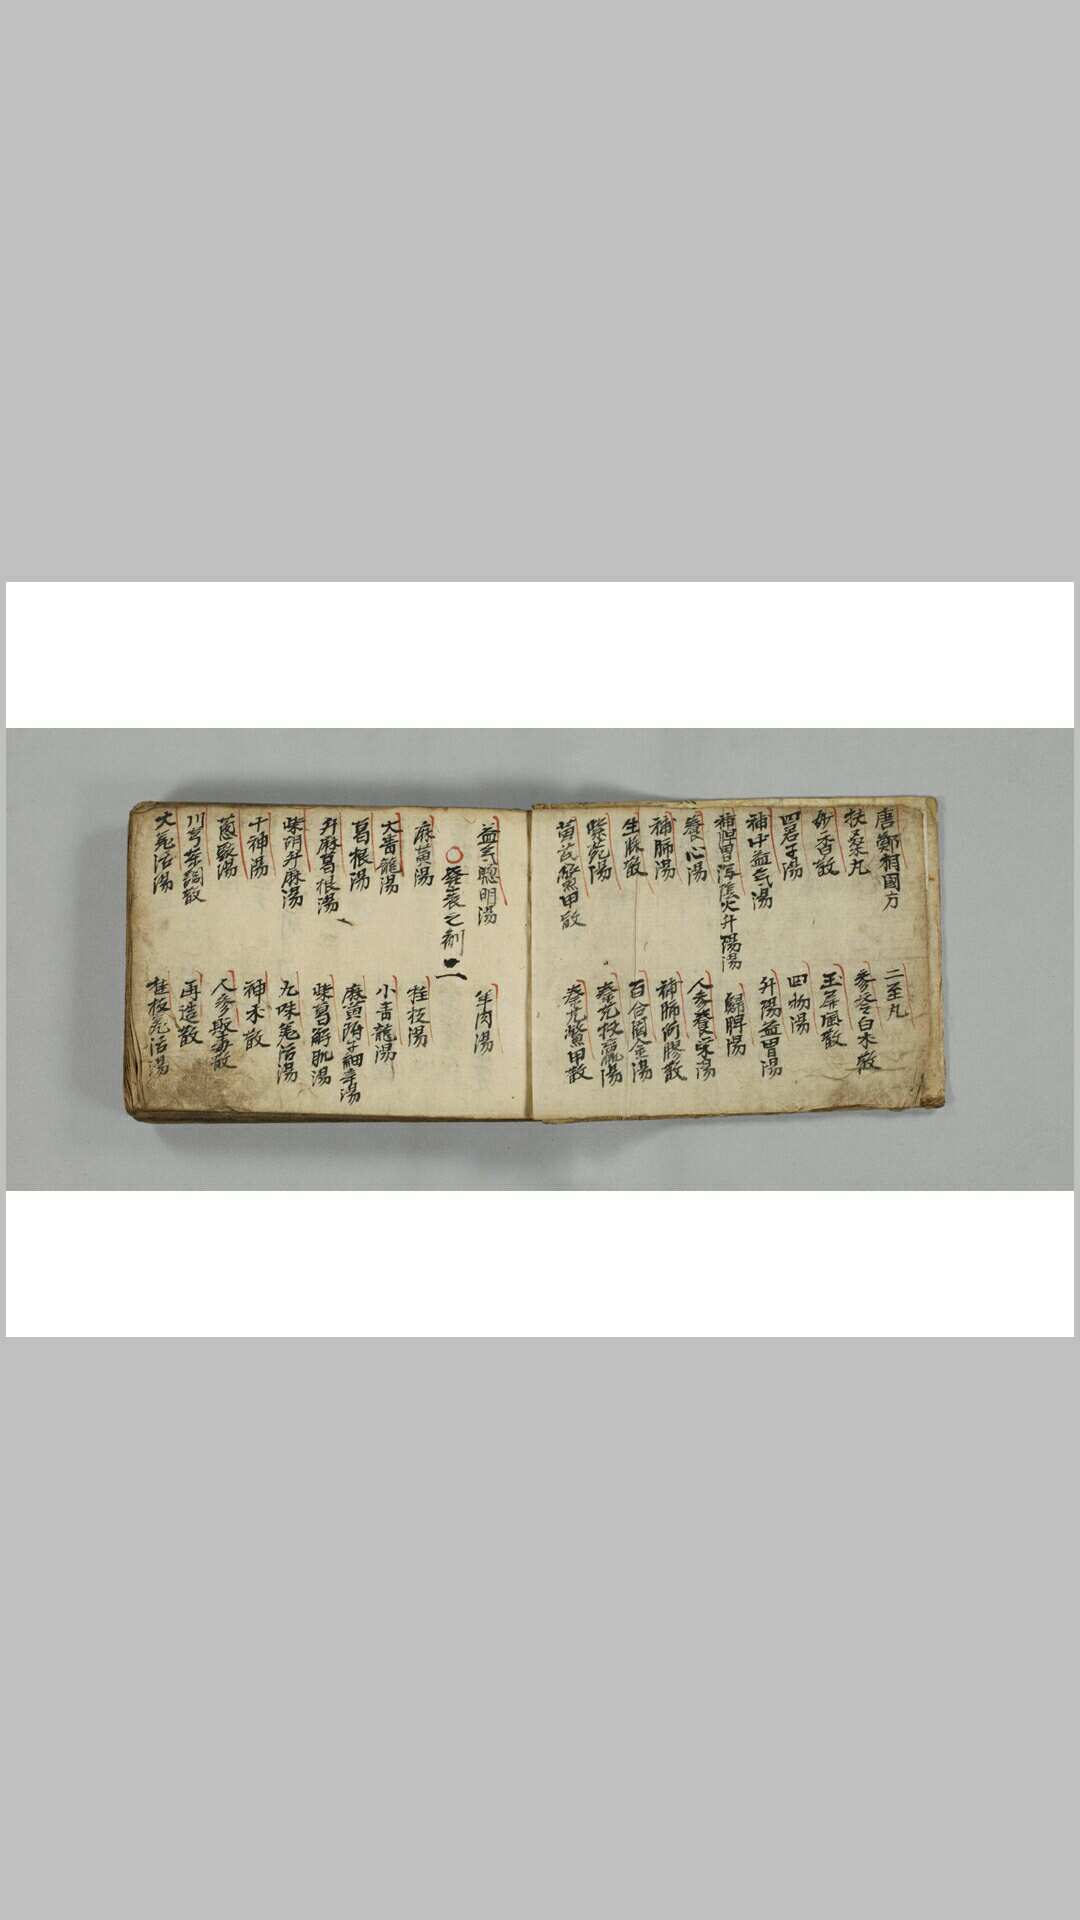 唐鄭相國方
二至丸
扶桑丸
參苓白朮散
妙香散
玉屏風散
四君子湯
四物湯
補中益气湯
升陽益胃湯
補脾胃瀉陰火升陽湯
歸脾湯
養心湯
人參養榮湯
補肺湯
補肺阿膠散
生脈散
百合固金湯
紫菀湯
秦艽扶羸湯
黃芪鱉甲散
秦艽鱉甲散
益气聰明湯
羊肉湯
○發表之劑二
麻黃湯
桂枝湯
大青龍湯
小青龍湯
葛根湯
麻黃附子細辛湯
升麻葛根湯
柴葛解肌湯
柴胡升麻湯
九味羌活湯
十神湯
神朮散
葱豉湯
人參敗毒散
川芎茶調散
再造散
大羌活湯
桂枝羌活湯